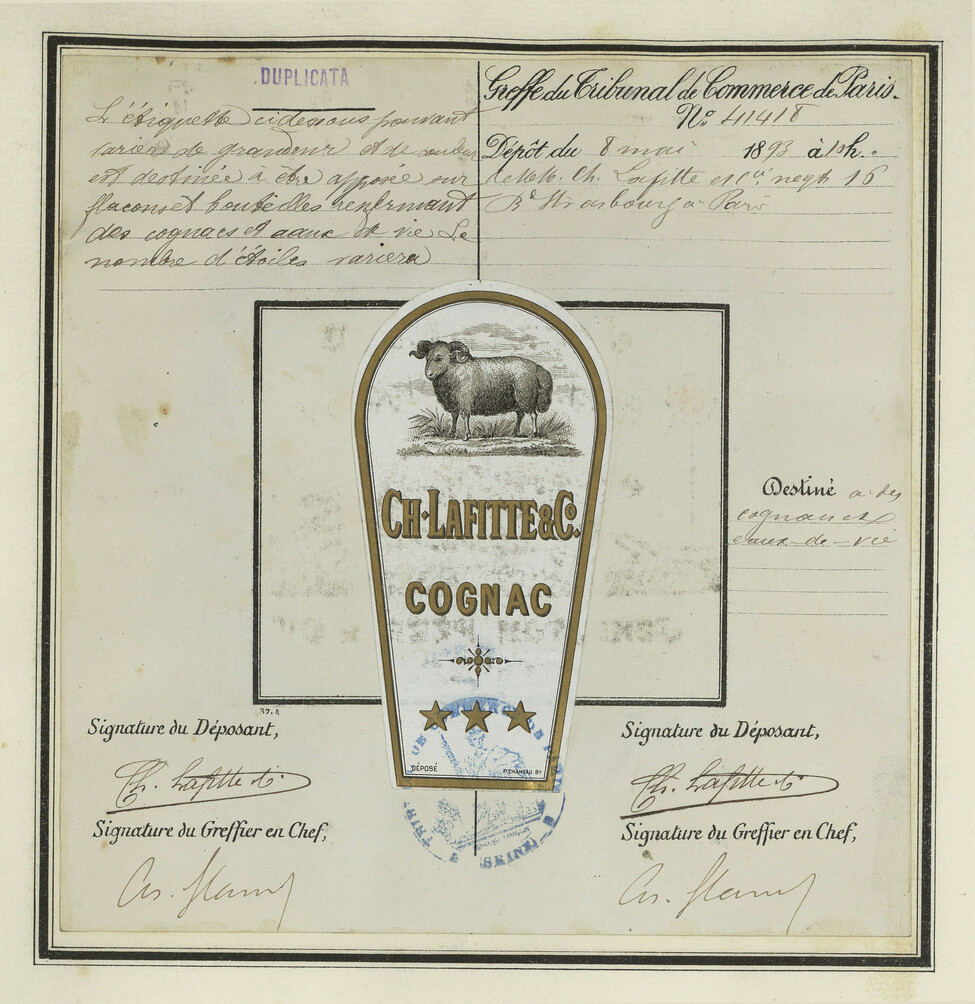 DUPLICATA
L'étiquette cidessous pouvant
varier de grandeur et de couleur
est destinée à être apposée sur
flacons et bouteilles renfermant
des cognacs et eaux de vie Le
nombre d'étoiles variera
Greffe du Tribunal de Commerce de Paris.
No. 41418
Dépôt du 8 mai 1893 à 10h.
de MM. Ch. Lafitte et Cie. negts 16
Bd Strasbourg a Paris
CH. LAFITTE & Co.
COGNAC
DÉPOSÉ
P. CHAMEAU. Bx
Destiné a des
cognacs et
eaux-de-vie
37. R
Signature du Déposant,
Signature du Déposant,
Ch. Lafitte &c.
Ch. Lafitte &c.
Signature du Greffier en Chef,
Signature du Greffier en Chef,
(SEINE)